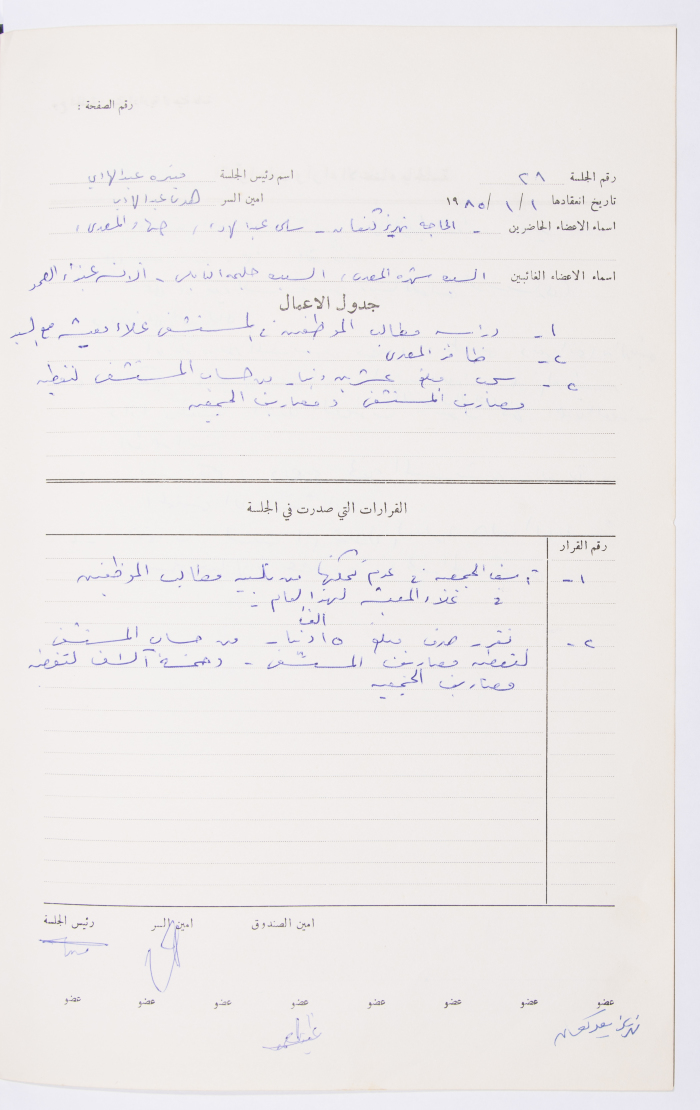 رقم الصفحة :
رقم الجلسة ٢٨ اسم رئيس الجلسة عبد الهادي
تاريخ انعقادها ١ / ١ / ١٩٨٥ امين السر عبد الهادي
اسماء الاعضاء الحاضرين - الحاجه كنعان - سلمى عبد الهادي ، المصري ،
اسماء الاعضاء الغائبين السيده المصري ، السيده حليمه النابلسي - الانسه
جدول الاعمال
١- دراسه مطالب الموظفين في المستشفى غلاء معيشه مع السيد
٢- ظافر المصري
٢- سحب مبلغ عشرين دينار من حساب المستشفى لتغطيه
مصاريف المستشفى و مصاريف الجمعيه
القرارات التي صدرت في الجلسة
رقم القرار
١- الجمعيه في عدم تمكنها من تلبيه مطالب الموظفين
في غلاء المعيشه لهذا العام :-
الف
٢- تقرر صرف مبلغ ١٥ دينار من حساب المستشفى
لتغطيه مصاريف المستشفى - وخمسة آلاف لتغطيه
مصاريف الجمعيه
امين الصندوق امين السر رئيس الجلسة
عضو عضو عضو عضو عضو عضو عضو عضو